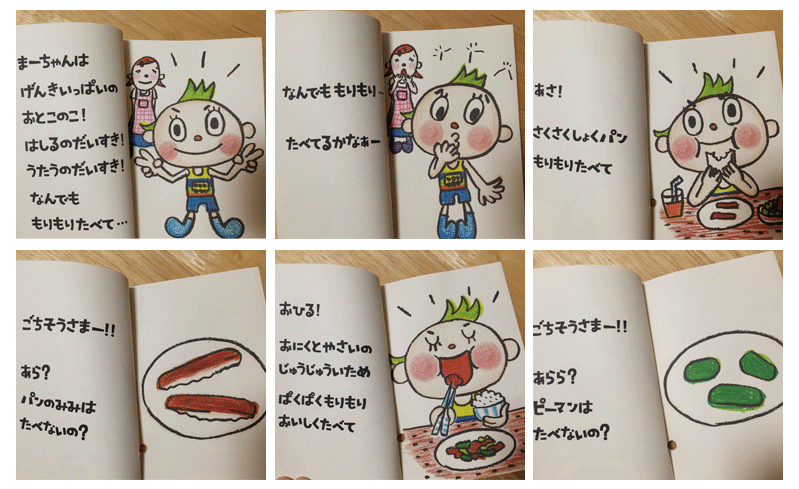 まーちゃんは
げんきいっぱいの
おとこのこ!
はしるのだいすき!
うたうのだいすき!
なんでも
もりもりたべて…
なんでももりもり…
たべてるかなぁー
あさ!
さくさくしょくパン
もりもりたべて
ごちそうさまー!!
あら?
パンのみみは
たべないの?
おひる!
おにくとやさいの
じゅうじゅういため
ぱくぱくもりもり
おいしくたべて
ごちそうさまー!!
あらら?
ピーマンは
たべないの?